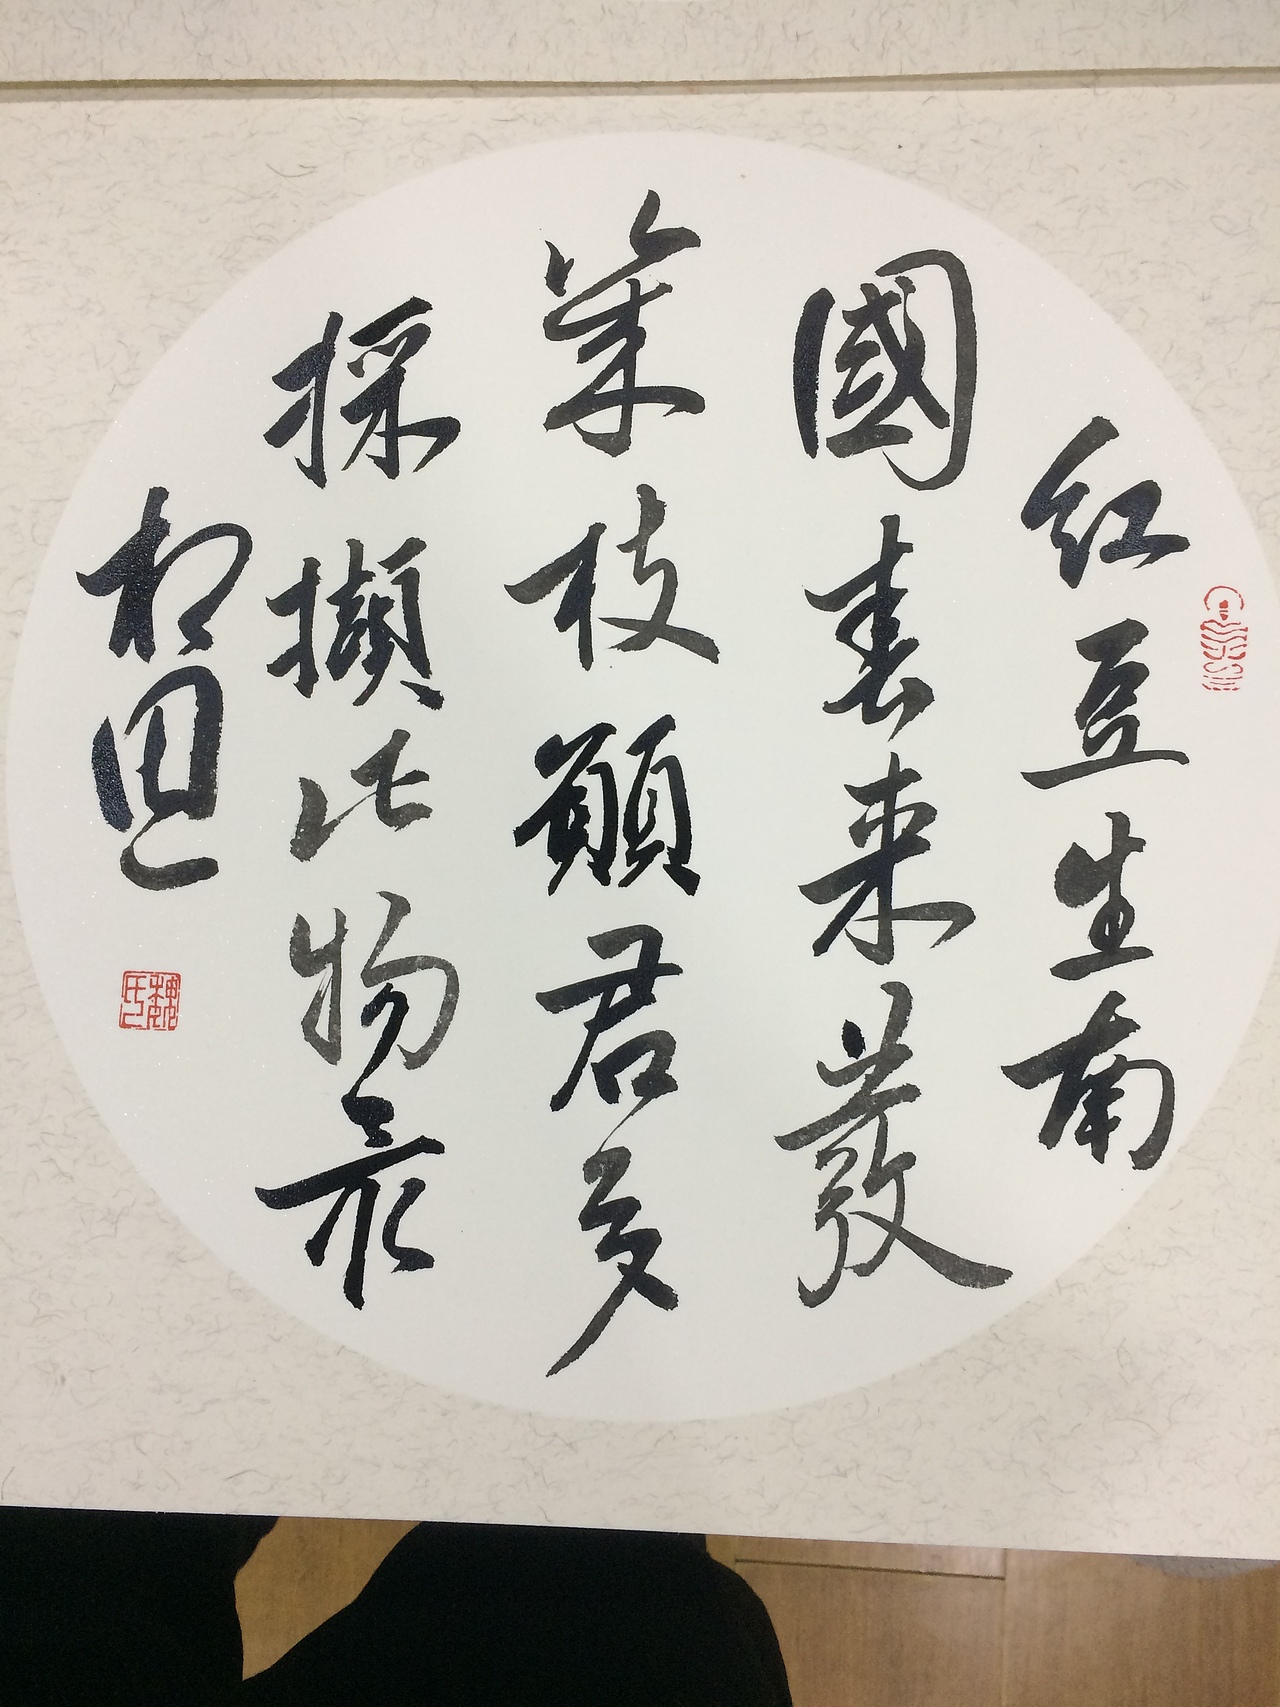 红豆生南
國春来發
幾枝願君多
採擷此物最
相思
魏氏